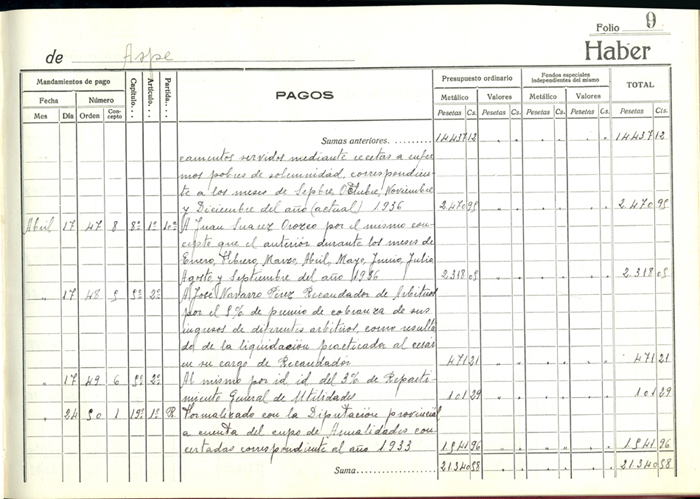 Folio 9
de Aspe
Haber
Mandamientos de pago
Fecha Número
Mes Día Orden Concepto
Capítulo. . . Artículo. . . Partida. . .
PAGOS
Presupuesto ordinario
Metálico Valores
Pesetas Cs. Pesetas Cs.
Fondos especiales
independientes del mismo
Metálico Valores
Pesetas Cs. Pesetas Cs.
TOTAL
Pesetas Cts.
Sumas anteriores. 14437 12 14437 12
camentos servidos mediante recetas a enfer
mos pobres de solemnidad, correspondien
te a los meses de Sepbre, Octubre, Noviembre
y Diciembre del año (actual) 1936 2.470 95 2.470 95
Abril 17 47 8 8º 1º 10º A Juan Suarez Orozco por el mismo con
cepto que el anterior durante los meses de
Enero, Febrero, Marzo, Abril, Mayo, Junio, Julio
Agosto y Septiembre del año 1936 2.318 05 2.318 05
" 17 48 5 5º 2º A José Navarro Pérez Recaudador de Arbitrios
por el 5% de premio de cobranza de sus
ingresos de diferentes arbitrios, como resulta
do de la liquidación practicada al cesar
en su cargo de Recaudador 471 21 471 21
" 17 49 6 5º 2º Al mismo por id id del 3% de Reparti
miento General de Utilidades 101 29 101 29
" 24 50 1 19º 1º R. Formalizado con la Diputación provincial
a cuenta del cupo de Anualidades con
certadas correspondiente al año 1933 1.541 96 1.541 96
Suma 21.340 58 21.340 58